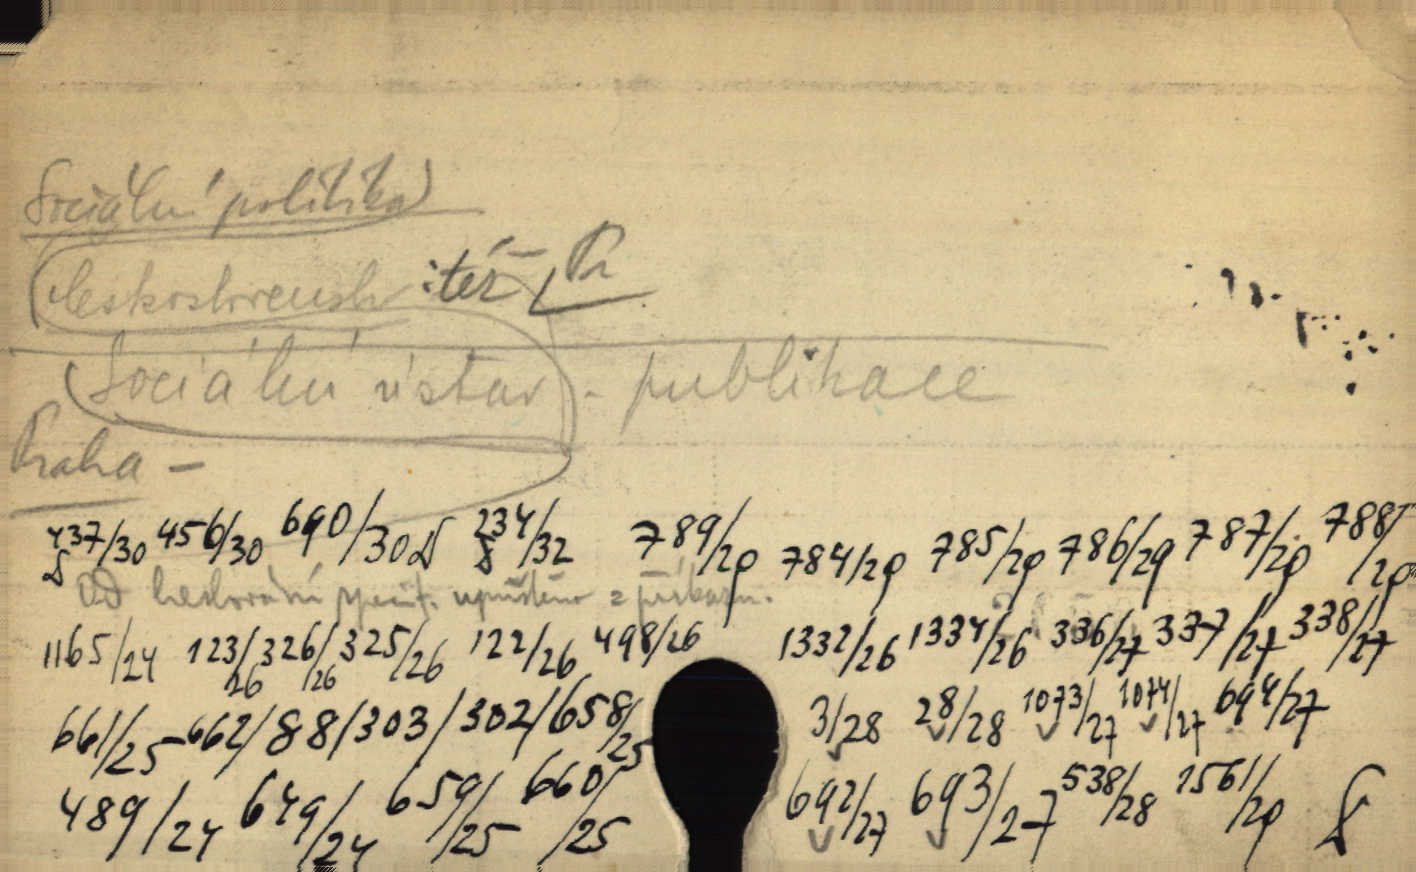 Sociální politika
československ : též Pr
Sociální ústav - publikace
Praha -
437/30 456/30 690/30 234/32 789/29 784/29 785/29 786/29 787/29 788/29
Od heslování specif. upuštěno z příkazu.
1165/24 123/26 326/26 325/26 122/26 498/26 1332/26 1334/26 336/27 337/27 338/27
661/25 662/ 88/ 303/ 302/ 658/25 3/28 28/28 1073/27 1074/27 694/27
489/24 649/24 659/25 660/25 692/27 693/27 538/28 1561/29